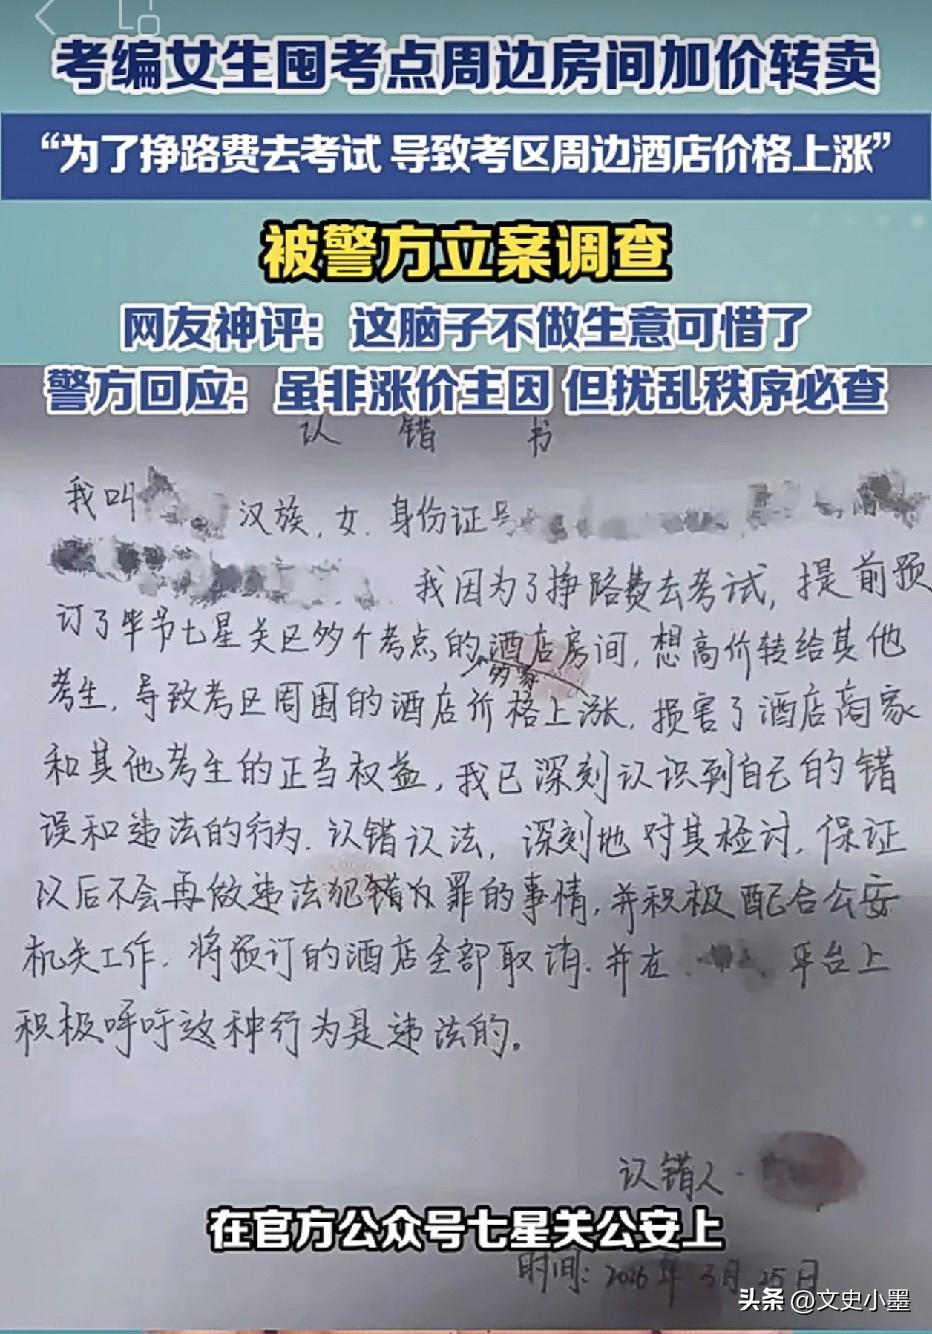 考编女生囤考点周边房间加价转卖
“为了挣路费去考试 导致考区周边酒店价格上涨”
被警方立案调查
网友神评：这脑子不做生意可惜了
警方回应：虽非涨价主因 但扰乱秩序必查
认 错 书
我叫 汉族，女，身份证号
我因为了挣路费去考试，提前预
订了毕节七星关区多个考点的酒店房间，想高价转给其他
多家
考生，导致考区周围的酒店价格上涨，损害了酒店商家
和其他考生的正当权益，我已深刻认识到自己的错
误和违法的行为，认错认法，深刻地对其检讨，保证
以后不会再做违法犯罪的事情，并积极配合公安
机关工作，将预订的酒店全部取消，并在 平台上
积极呼吁这种行为是违法的。
认错人
在官方公众号七星关公安上
时间：2026年3月25日
头条 @文史小墨